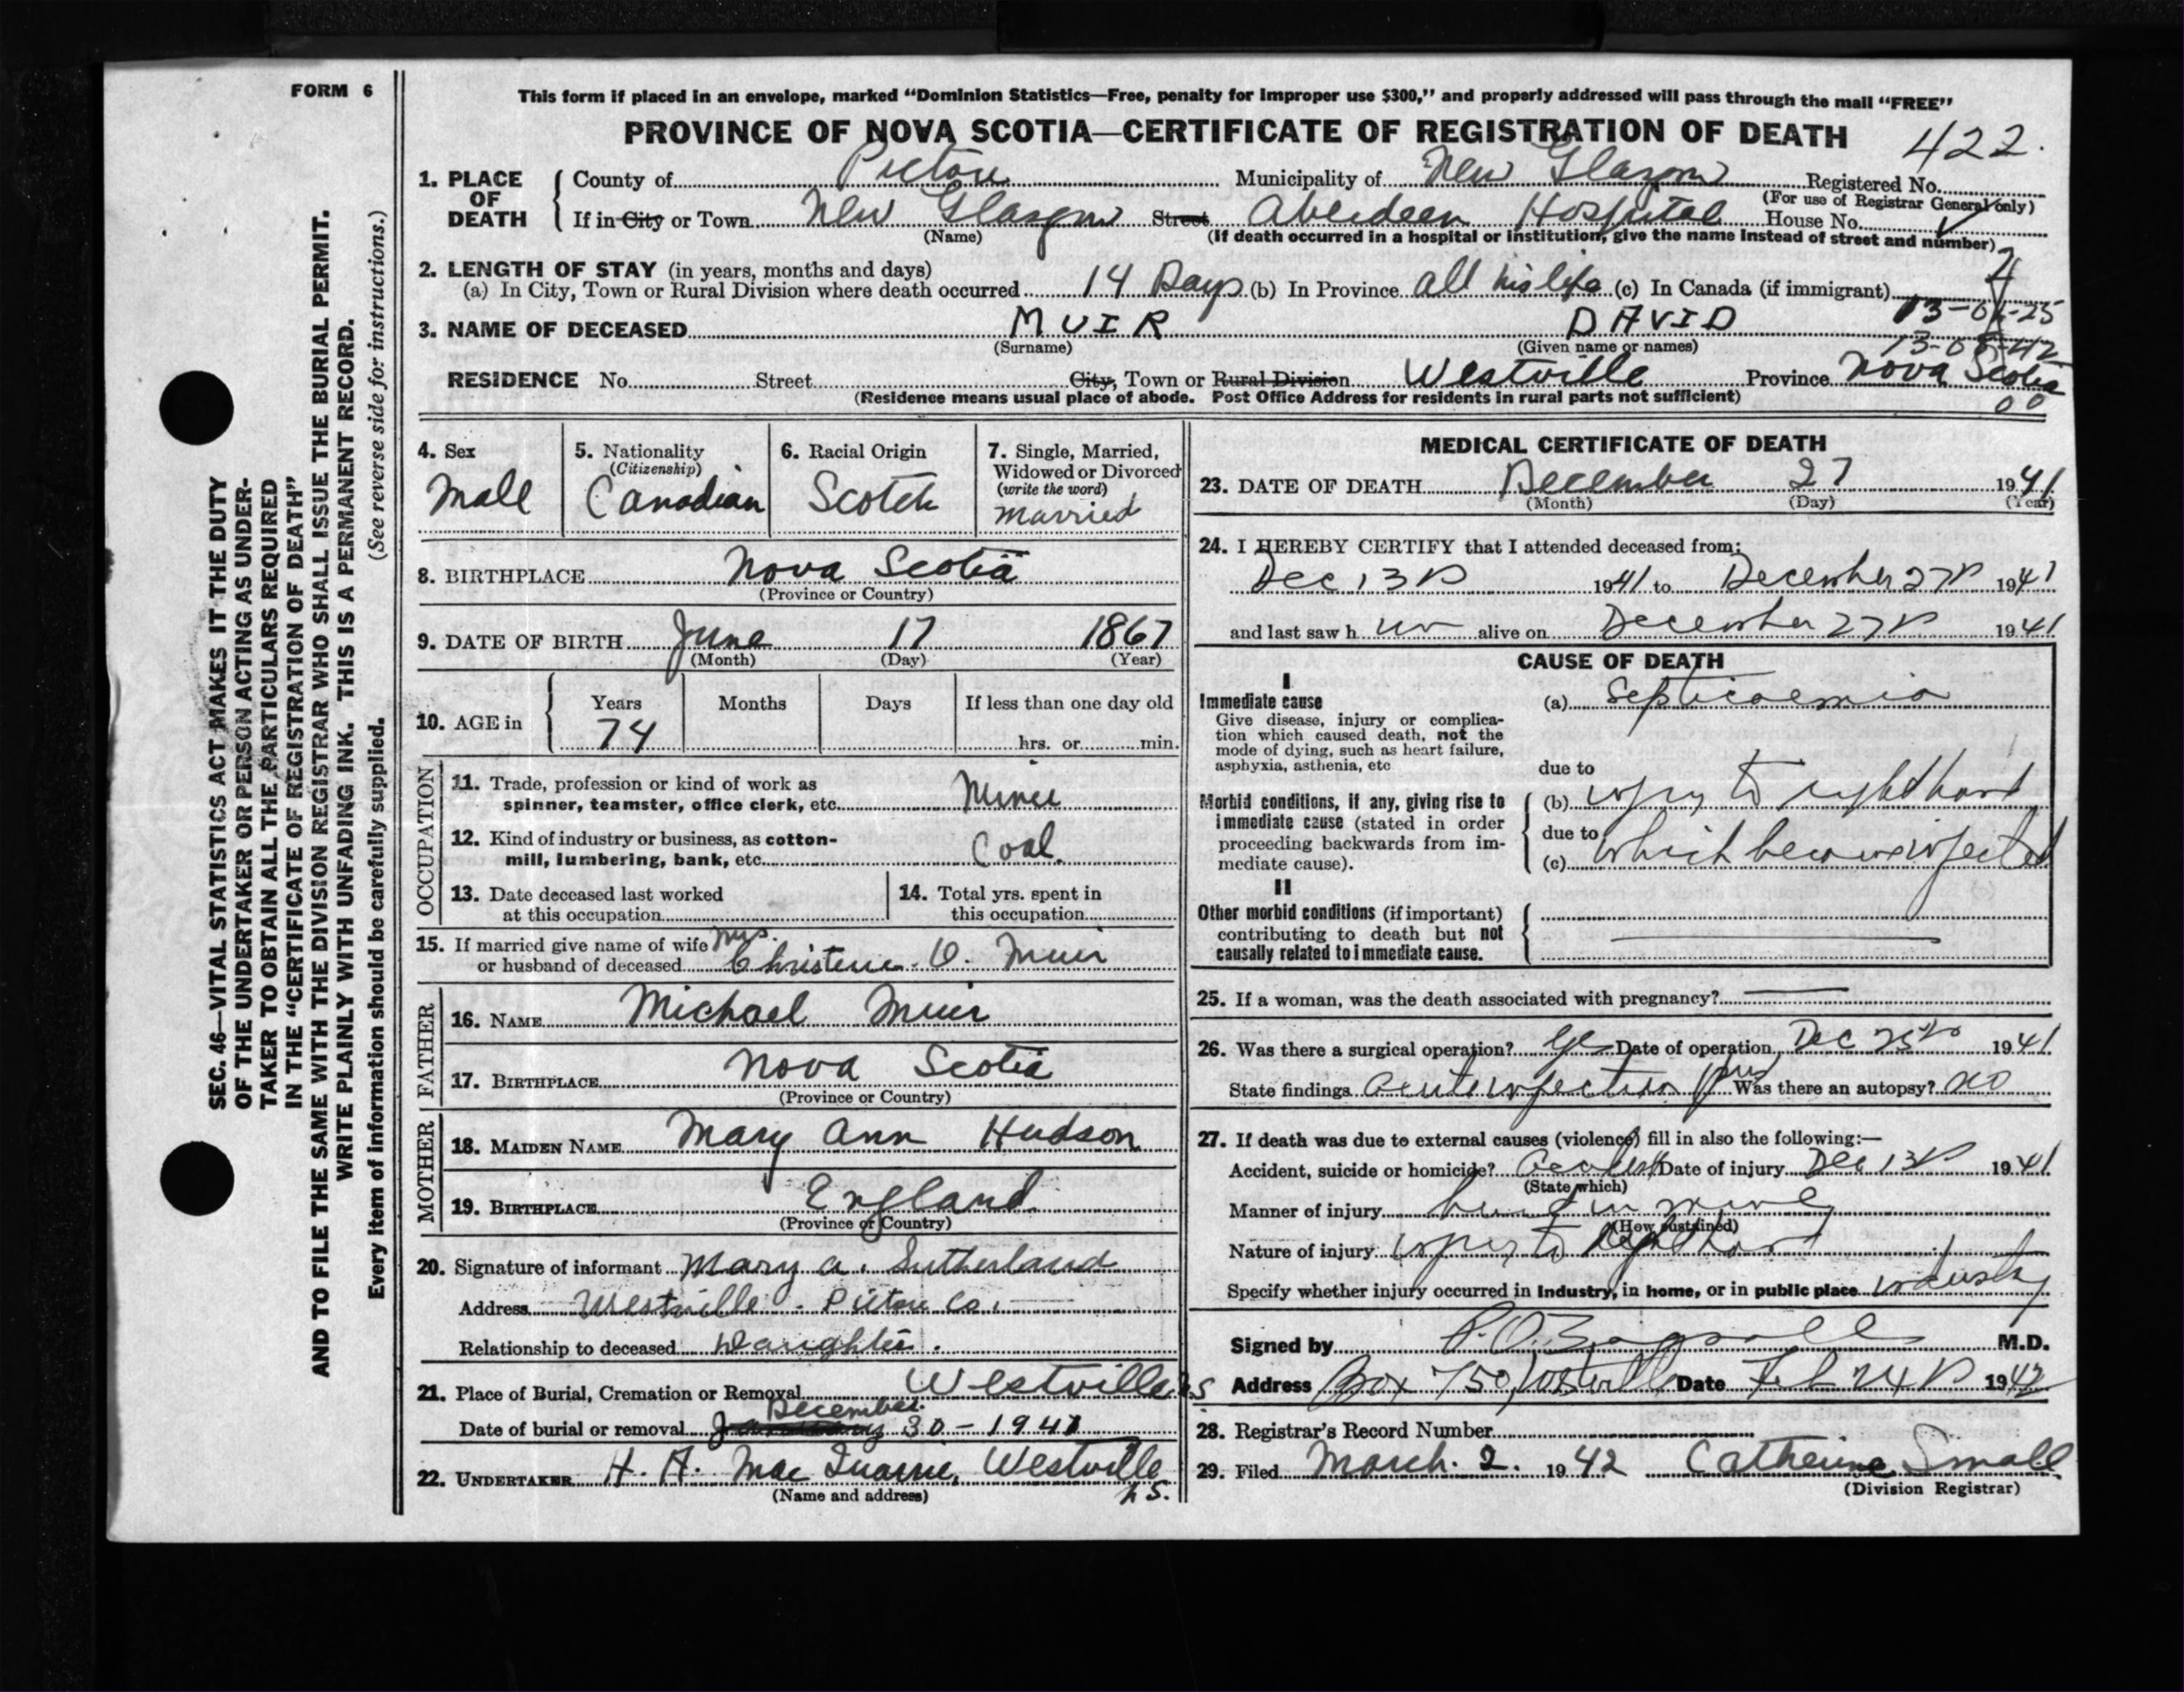 FORM 6
This form if placed in an envelope, marked “Dominion Statistics—Free, penalty for improper use $300,” and properly addressed will pass through the mail “FREE”
PROVINCE OF NOVA SCOTIA—CERTIFICATE OF REGISTRATION OF DEATH
422.
1. PLACE OF DEATH
County of Pictou Municipality of New Glasgow Registered No.
(For use of Registrar General only)
If in City or Town New Glasgow Street Aberdeen Hospital House No.
(Name) (If death occurred in a hospital or institution, give the name instead of street and number)
2. LENGTH OF STAY (in years, months and days)
(a) In City, Town or Rural Division where death occurred 14 Days (b) In Province all his life (c) In Canada (if immigrant)
3. NAME OF DECEASED MUIR DAVID
(Surname) (Given name or names)
RESIDENCE No. Street City, Town or Rural Division Westville Province Nova Scotia
(Residence means usual place of abode. Post Office Address for residents in rural parts not sufficient)
00
4. Sex
Male
5. Nationality
(Citizenship)
Canadian
6. Racial Origin
Scotch
7. Single, Married,
Widowed or Divorced
(write the word)
married
8. BIRTHPLACE Nova Scotia
(Province or Country)
9. DATE OF BIRTH June 17 1867
(Month) (Day) (Year)
10. AGE in
Years Months Days If less than one day old
74 hrs. or min.
OCCUPATION
11. Trade, profession or kind of work as
spinner, teamster, office clerk, etc.
12. Kind of industry or business, as cotton-
mill, lumbering, bank, etc. Coal.
13. Date deceased last worked
at this occupation
14. Total yrs. spent in
this occupation
15. If married give name of wife Mrs.
or husband of deceased Muir
FATHER
16. NAME Michael Muir
17. BIRTHPLACE Nova Scotia
(Province or Country)
MOTHER
18. MAIDEN NAME Mary Ann Hudson
19. BIRTHPLACE England.
(Province or Country)
20. Signature of informant Mary A. Sutherland
Address Westville. Pictou Co.
Relationship to deceased Daughter.
21. Place of Burial, Cremation or Removal Westville N S
December
Date of burial or removal 30-1941
22. UNDERTAKER H. A. Mac Westville
(Name and address) N S.
MEDICAL CERTIFICATE OF DEATH
23. DATE OF DEATH December 27 1941
(Month) (Day) (Year)
24. I HEREBY CERTIFY that I attended deceased from:
Dec 13 1941 to December 27 1941
and last saw h im alive on December 27 1941
CAUSE OF DEATH
I
Immediate cause
Give disease, injury or complica-
tion which caused death, not the
mode of dying, such as heart failure,
asphyxia, asthenia, etc
(a) Septicaemia
due to
Morbid conditions, if any, giving rise to
immediate cause (stated in order
proceeding backwards from im-
mediate cause).
(b) injury to right hand
due to
(c) which became infected
II
Other morbid conditions (if important)
contributing to death but not
causally related to immediate cause.
25. If a woman, was the death associated with pregnancy?
26. Was there a surgical operation? Yes Date of operation Dec 25 1941
State findings Acute infection pus Was there an autopsy? no
27. If death was due to external causes (violence) fill in also the following:—
Accident, suicide or homicide? Accident Date of injury Dec 13 1941
(State which)
Manner of injury in mine
(How sustained)
Nature of injury injury to right hand
Specify whether injury occurred in industry, in home, or in public place industry
Signed by M.D.
Address Box 750, Westville Date Feb 24 1942
28. Registrar's Record Number
29. Filed March. 2. 1942 Catherine Small
(Division Registrar)
SEC. 46—VITAL STATISTICS ACT MAKES IT THE DUTY
OF THE UNDERTAKER OR PERSON ACTING AS UNDER-
TAKER TO OBTAIN ALL THE PARTICULARS REQUIRED
IN THE “CERTIFICATE OF REGISTRATION OF DEATH”
AND TO FILE THE SAME WITH THE DIVISION REGISTRAR WHO SHALL ISSUE THE BURIAL PERMIT.
WRITE PLAINLY WITH UNFADING INK. THIS IS A PERMANENT RECORD.
Every item of information should be carefully supplied. (See reverse side for instructions.)